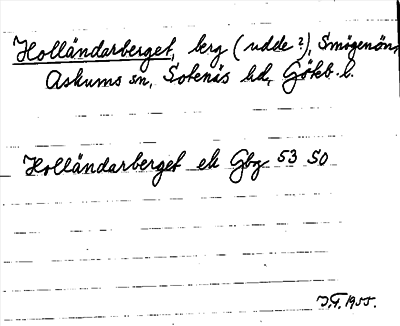 Holländarberget, berg (udde?), Smögenön,
Askums sn, Sotenäs hd, Göteb. l.
Holländarberget ek Gbg 53 SO
1955.